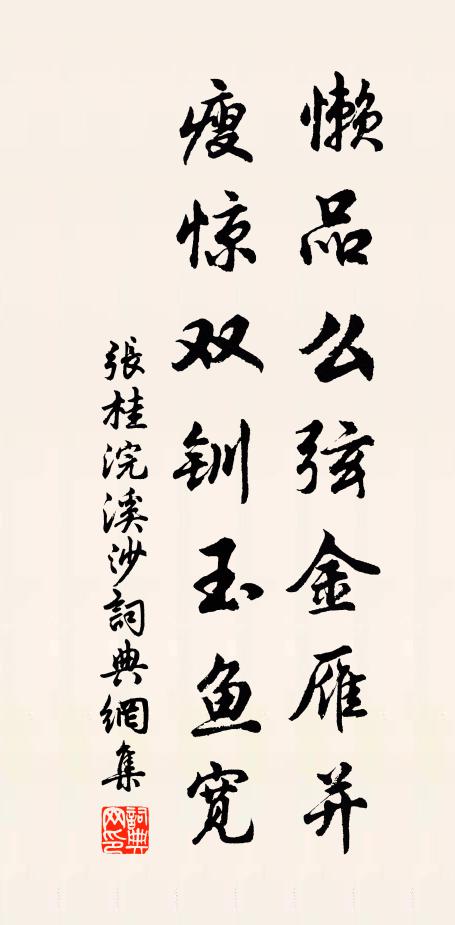 懒品么弦金雁并
瘦惊双钏玉鱼宽
張桂浣溪沙詞典網集
詞典
网印